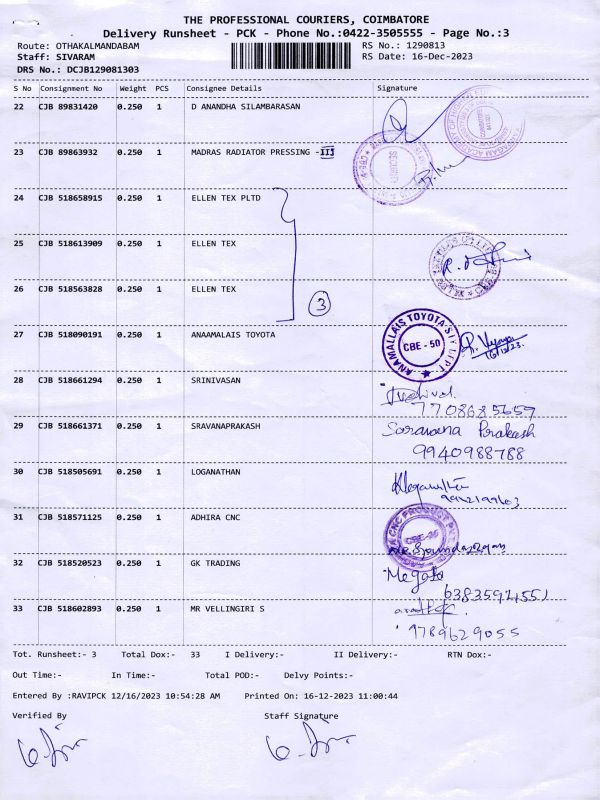 THE PROFESSIONAL COURIERS, COIMBATORE
Delivery Runsheet - PCK - Phone No.:0422-3505555 - Page No.:3
Route: OTHAKALMANDABAM RS No.: 1290813
Staff: SIVARAM RS Date: 16-Dec-2023
DRS No.: DCJB129081303
S No Consignment No Weight PCS Consignee Details Signature
22 CJB 89831420 0.250 1 D ANANDHA SILAMBARASAN
23 CJB 89863932 0.250 1 MADRAS RADIATOR PRESSING -III
24 CJB 518658915 0.250 1 ELLEN TEX PLTD
25 CJB 518613909 0.250 1 ELLEN TEX
26 CJB 518563828 0.250 1 ELLEN TEX
3
27 CJB 518090191 0.250 1 ANAAMALAIS TOYOTA
ANAMALLAIS TOYOTA
CBE - 50
16/12/23.
28 CJB 518661294 0.250 1 SRINIVASAN
7708685659
29 CJB 518661371 0.250 1 SRAVANAPRAKASH Saravana Prakash
9940988788
30 CJB 518505691 0.250 1 LOGANATHAN
31 CJB 518571125 0.250 1 ADHIRA CNC
CNC PRODUCT
32 CJB 518520523 0.250 1 GK TRADING
33 CJB 518602893 0.250 1 MR VELLINGIRI S
9789629055
Tot. Runsheet:- 3 Total Dox:- 33 I Delivery:- II Delivery:- RTN Dox:-
Out Time:- In Time:- Total POD:- Delvy Points:-
Entered By :RAVIPCK 12/16/2023 10:54:28 AM Printed On: 16-12-2023 11:00:44
Verified By Staff Signature